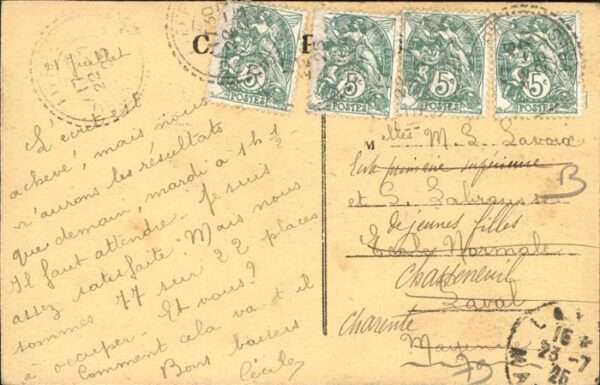 21 Juillet
L'écrit est
achevé, mais nous
n'aurons les résultats
que demain, mardi à 1h ½
Il faut attendre. Je suis
assez satisfaite. Mais nous
sommes 77 sur 22 places
à occuper. Et vous?
Comment cela va t il
Bons baisers
Cécile
5 5 5 5
POSTES POSTES POSTES POSTES
M elles M. L. Lavoix
Ecole primaire supérieure
et S. Labrousse
de jeunes filles
Ecole Normale
Chasseneuil
Laval
Charente
Mayenne
B
16
23-7
25